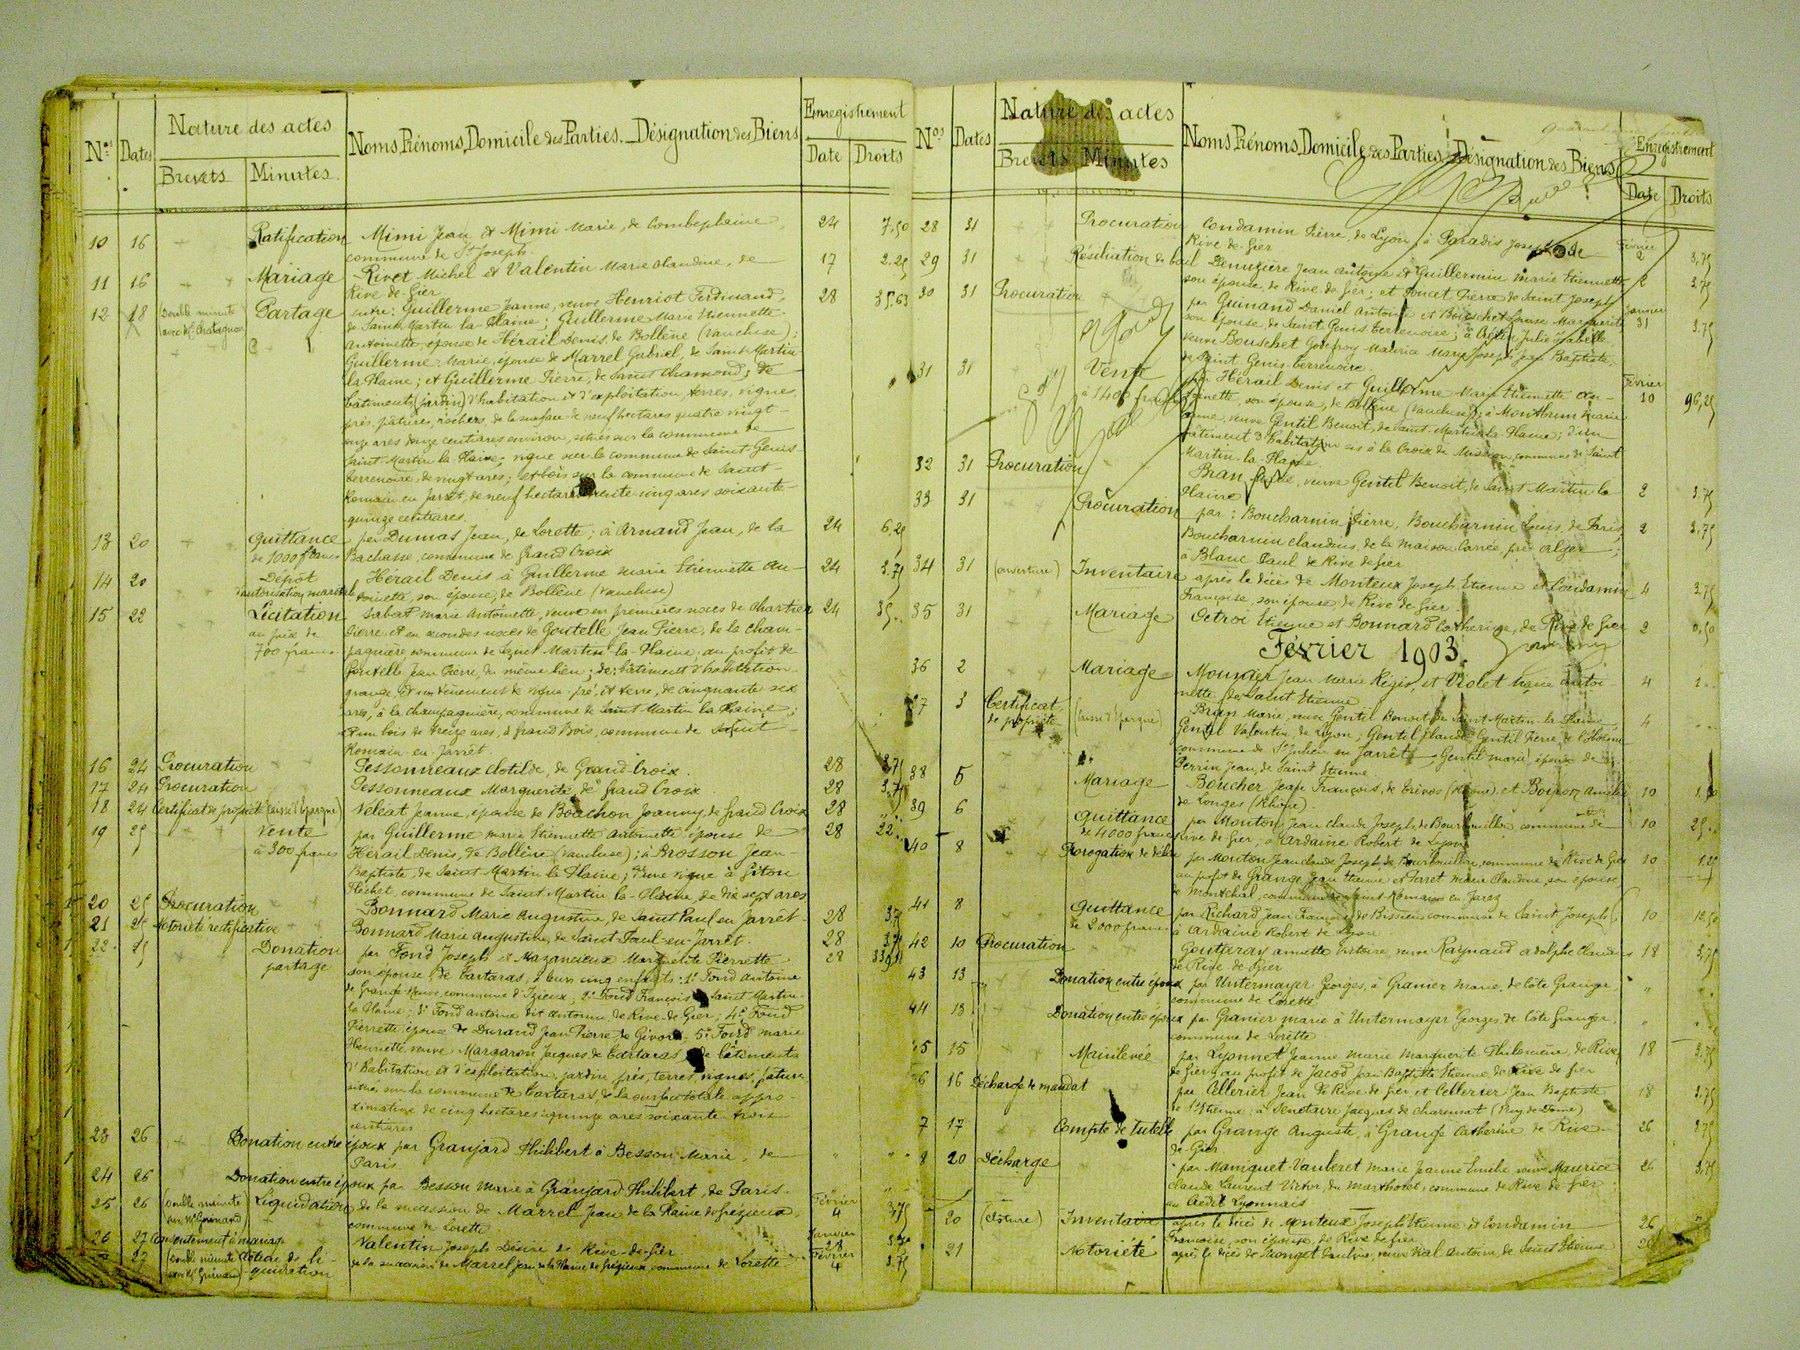 Nos Dates Nature des actes Noms, Prénoms, Domicile des Parties _ Désignation des Biens Enregistrement
Brevets Minutes Date Droits
10 16 Ratification Mimi Jean & Mimi Marie, de Combeplaine 24 7.50
commune de St Joseph.
11 16 Mariage Rivet Michel et Valentin Marie Claudine, de 17 2.25
Rive-de-Gier
12 18 Double minute Partage entre: Guillerme Jeanne, veuve Henriot Ferdinand, 28 35.63
avec Me Chatagnon de Saint Martin la Plaine; Guillerme Marie Etiennette
Antoinette épouse de Hérail Denis de Bollène (Vaucluse);
Guillerme Marie, épouse de Marrel Gabriel, de Saint-Martin
la Plaine; et Guillerme Pierre, de Saint Chamond; de
bâtiments (jardin) d'habitation et d'exploitation, terres, vignes
prés, pâtures, rochers, de la surface de neuf hectares quatre vingt
onze ares onze centiares environ, situés sur la commune de
Saint Martin la Plaine; vigne sur la commune de Saint-Genis
Terrenoire, de vingt ares; et bois sur la commune de Saint-
Romain en Jarret, de neuf hectares trente cinq ares soixante-
quinze centiares
13 20 Quittance par Dumas Jean, de Lorette; à Arnaud Jean, de la 24 6.25
de 1000 francs Bachasse, commune de Grand Croix
14 20 Dépôt Hérail Denis à Guillerme Marie Etiennette An- 24 3.75
d'autorisation maritale toinette, son épouse, de Bollène (Vaucluse)
15 22 Licitation Sabot Marie Antoinette, veuve en premières noces de Chartier 24 35..
au prix de Pierre et en secondes noces de Goutelle Jean Pierre, de la Cham-
700 francs pagnière commune de Saint Martin-la-Plaine, au profit de
Goutelle Jean Pierre, du même lieu; de: bâtiment d'habitation
grange, et un tènement de vigne, pré, et terre, de cinquante six
ares, à la Champagnière, commune de Saint Martin la Plaine;
d'un bois de treize ares, à Grand Bois, commune de Saint
Romain-en-Jarret.
16 24 Procuration Pessonneaux Clotilde, de Grand Croix. 28 3.75
17 24 Procuration Pessonneaux Marguerite de Grand Croix 28 3.75
18 24 Certificat de propriété (Caisse d'Epargne) Velcat Jeanne, épouse de Boachon Joanny, de Grand Croix 28
19 25 Vente par Guillerme Marie Etiennette Antoinette épouse de 28 22..
à 300 francs Hérail Denis, de Bollène (Vaucluse); à Brosson Jean
Baptiste, de Saint Martin la Plaine; d'une vigne à Giton
Péchet, commune de Saint Martin la Plaine, de dix sept ares
20 25 Procuration Bonnard Marie Augustine, de Saint Paul en Jarret 28 3.75
21 25 Notoriété rectificative Bonnard Marie Augustine, de Saint Paul-en-Jarret. 28 3.75
22 25 Donation par Fond Joseph et Mazancieux Marguerite Pierrette 28
partage son épouse, de Tartaras, à leurs cinq enfants: 1° Fond Antoine
de Grande Neuve, commune d'Izieux; 2° Fond François de Saint Martin
la Plaine; 3° Fond Antoine dit Antonin de Rive-de-Gier; 4° Fond
Pierrette épouse de Durand Jean Pierre de Givors. 5° Fond Marie
Henriette veuve Margaron Jacques de Tartaras de bâtiments
d'habitation et d'exploitation, jardin, prés, terres, vignes, pature
situés sur la commune de Tartaras, de la surface totale appro-
ximative de cinq hectares quinze ares soixante-trois
centiares
23 26 Donation entre époux par Granjard Philibert à Besson Marie, de " "
Paris.
24 26 Donation entre époux par Besson Marie à Granjard Philibert, de Paris.
25 26 (Double minute Liquidation de la succession de Marrel Jean de la Plaine de Grézieux, Février 4 3.75
commune de Lorette
26 27 Consentement à mariage Valentin Joseph Désiré de Rive-de-Gier Janvier 28
27 (double minute Clôture de li- de la succession de Marrel Jean de la Plaine de Grézieux commune de Lorette Février 4 3.75
quidation
Nos Dates Nature des actes Noms, Prénoms, Domicile des Parties, Désignation des Biens Enregistrement
Brevets Minutes Date Droits
28 31 Procuration Condamin Pierre, de Lyon, à Paradis Joseph de Février 2 3.75
Rive-de-Gier
29 31 Résiliation de bail Jean Antoine et Guillermin Marie Etiennette 2 3.75
son épouse, de Rive de Gier; et Poncet Pierre de Saint Joseph
30 31 Procuration par Guinand Daniel Antoine et Bouschet Louise Marguerite Janvier 31 3.75
son épouse de Saint Genis Terrenoire; à Julie Isabelle
veuve Bouschet Godefroy Maurice Marie Joseph Jean Baptiste,
de Saint Genis-Terrenoire.
31 31 Vente par Hérail Denis et Guillerme Marie Etiennette An- Février 10 96,25
à 1400 francs toinette, son épouse, de Bollène (Vaucluse); à Montbrun Marie
veuve Gentil Benoit, de Saint-Martin la Plaine; d'un
bâtiment d'habitation sis à la Croix de Mission, commune de Saint
Martin-la-Plaine
32 31 Procuration Bran Marie, veuve Gentil Benoit, de Saint Martin la 2 3.75
Plaine
33 31 Procuration par: Boucharnin Pierre, Boucharnin Louis, de Paris, 2 3.75
Boucharnin Claudius, de la Maison Carrée, près Alger;
à Blanc Paul de Rive de Gier
34 31 (ouverture) Inventaire après le décès de Monteux Joseph Etienne et Condamin 4 3.75
Françoise, son épouse, de Rive de Gier.
35 31 Mariage Octroi Etienne et Bonnard Catherine, de Rive de Gier 2 0,50
Février 1903.
36 2 Mariage Mounier Jean Marie Régis, et Violet Marie Antoi- 4 1..
nette, de Saint Etienne
37 3 Certificat (Caisse d'Epargne) Bran Marie, veuve Gentil Benoit, de Saint Martin la Plaine 4
de propriété Gentil Valentin, de Lyon; Gentil Claude, Gentil Pierre, de
commune de St Julien en Jarret, Gentil Marie épouse de
Perrin Jean, de Saint Etienne
38 5 Mariage Boucher Jean François, de Trèves (Rhône), et Boiron Amélie 10
de Longes (Rhône).
39 6 Quittance par Mouton Jean Claude Joseph, de Bourbouillon commune de 10 25..
de 4000 francs Rive de Gier; à Ardaine Robert de Lyon
40 8 Prorogation de délai par Mouton Jean Claude Joseph, de Bourbouillon, commune de Rive de Gier 10
au profit de Grange Jean Etienne et Ferret Marie Claudine, son épouse
de Montchal, commune de Saint Romain en Jarez
41 8 Quittance par Richard Jean François, de Bissieux commune de Saint Joseph; 10 12.50
de 2000 francs à Ardaine Robert de Lyon
42 10 Procuration Goutteray Annette Victoire, veuve Raynaud Adolphe Claudius 18 3.75
de Rive de Gier
43 13 Donation entre époux par Untermayer Georges, à Granier Marie, de Côte Granger " "
commune de Lorette
44 13 Donation entre époux par Granier Marie à Untermayer Georges, de Côte Granger, " "
commune de Lorette
45 15 Mainlevée par Lyonnet Jeanne Marie Marguerite Philomène, de Rive 18 3.75
de Gier, au profit de Jacod Jean Baptiste Etienne, de Rive de Gier
46 16 Décharge de mandat par Cellerier Jean de Rive de Gier et Cellerier Jean Baptiste 18 3.75
de St Etienne; à Senetaire Jacques de Charensat (Puy de Dôme)
7 17 Compte de tutelle par Grange Auguste, à Grange Catherine de Rive- 26 3.75
de-Gier
8 20 Décharge par Mainguet-Vauberet Marie Jeanne Emilie veuve Maurice 26 3.75
Claude Laurent Victor, du Marthoret, commune de Rive de Gier
au Crédit Lyonnais
20 (clôture) Inventaire après le décès de Monteux Joseph Etienne et Condamin 26
Françoise, son épouse, de Rive de Gier
21 Notoriété après le décès de Pauline, veuve Antoine de Saint Etienne 26